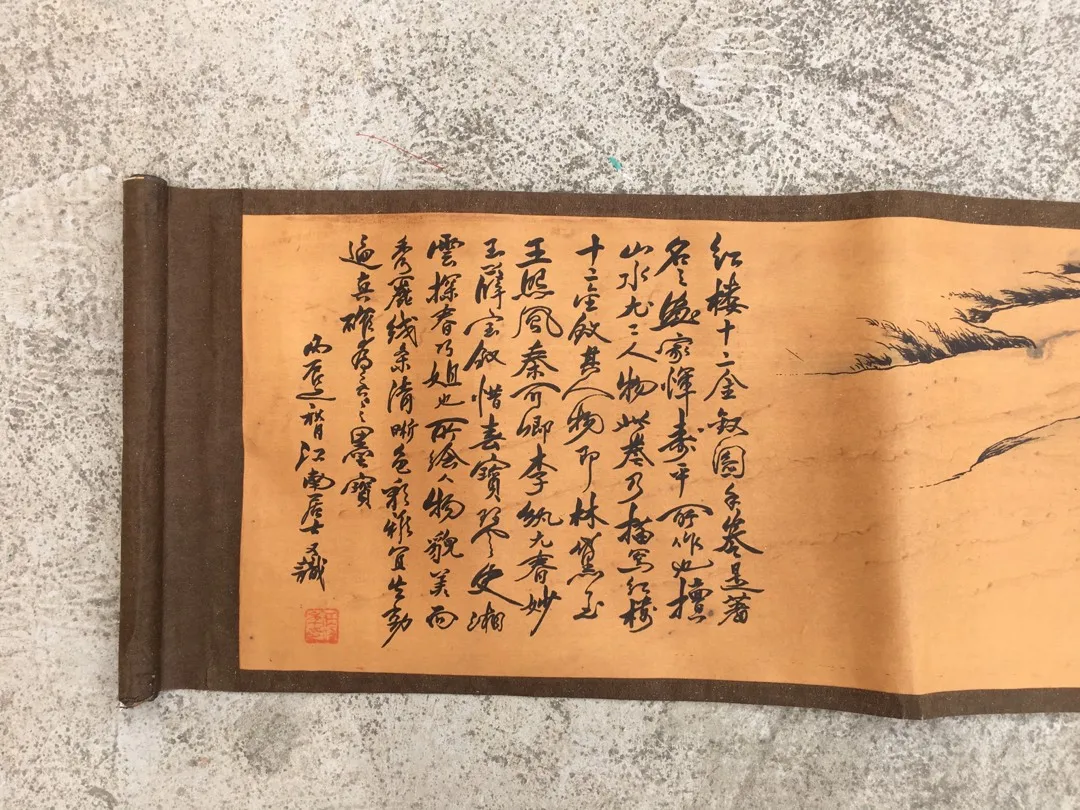 红楼十二金钗图手卷是著
名之画家恽寿平所作也擅
山水尤工人物此卷乃描写红楼
十二金钗其人物即林黛玉
王熙凤秦可卿李纨元春妙
玉薛宝钗惜春寶琴史湘
雲探春乃姐也所绘人物貌美而
秀丽线条清晰色彩雅宜生动
逼真確为之墨寶
丙辰之秋月江南居士識